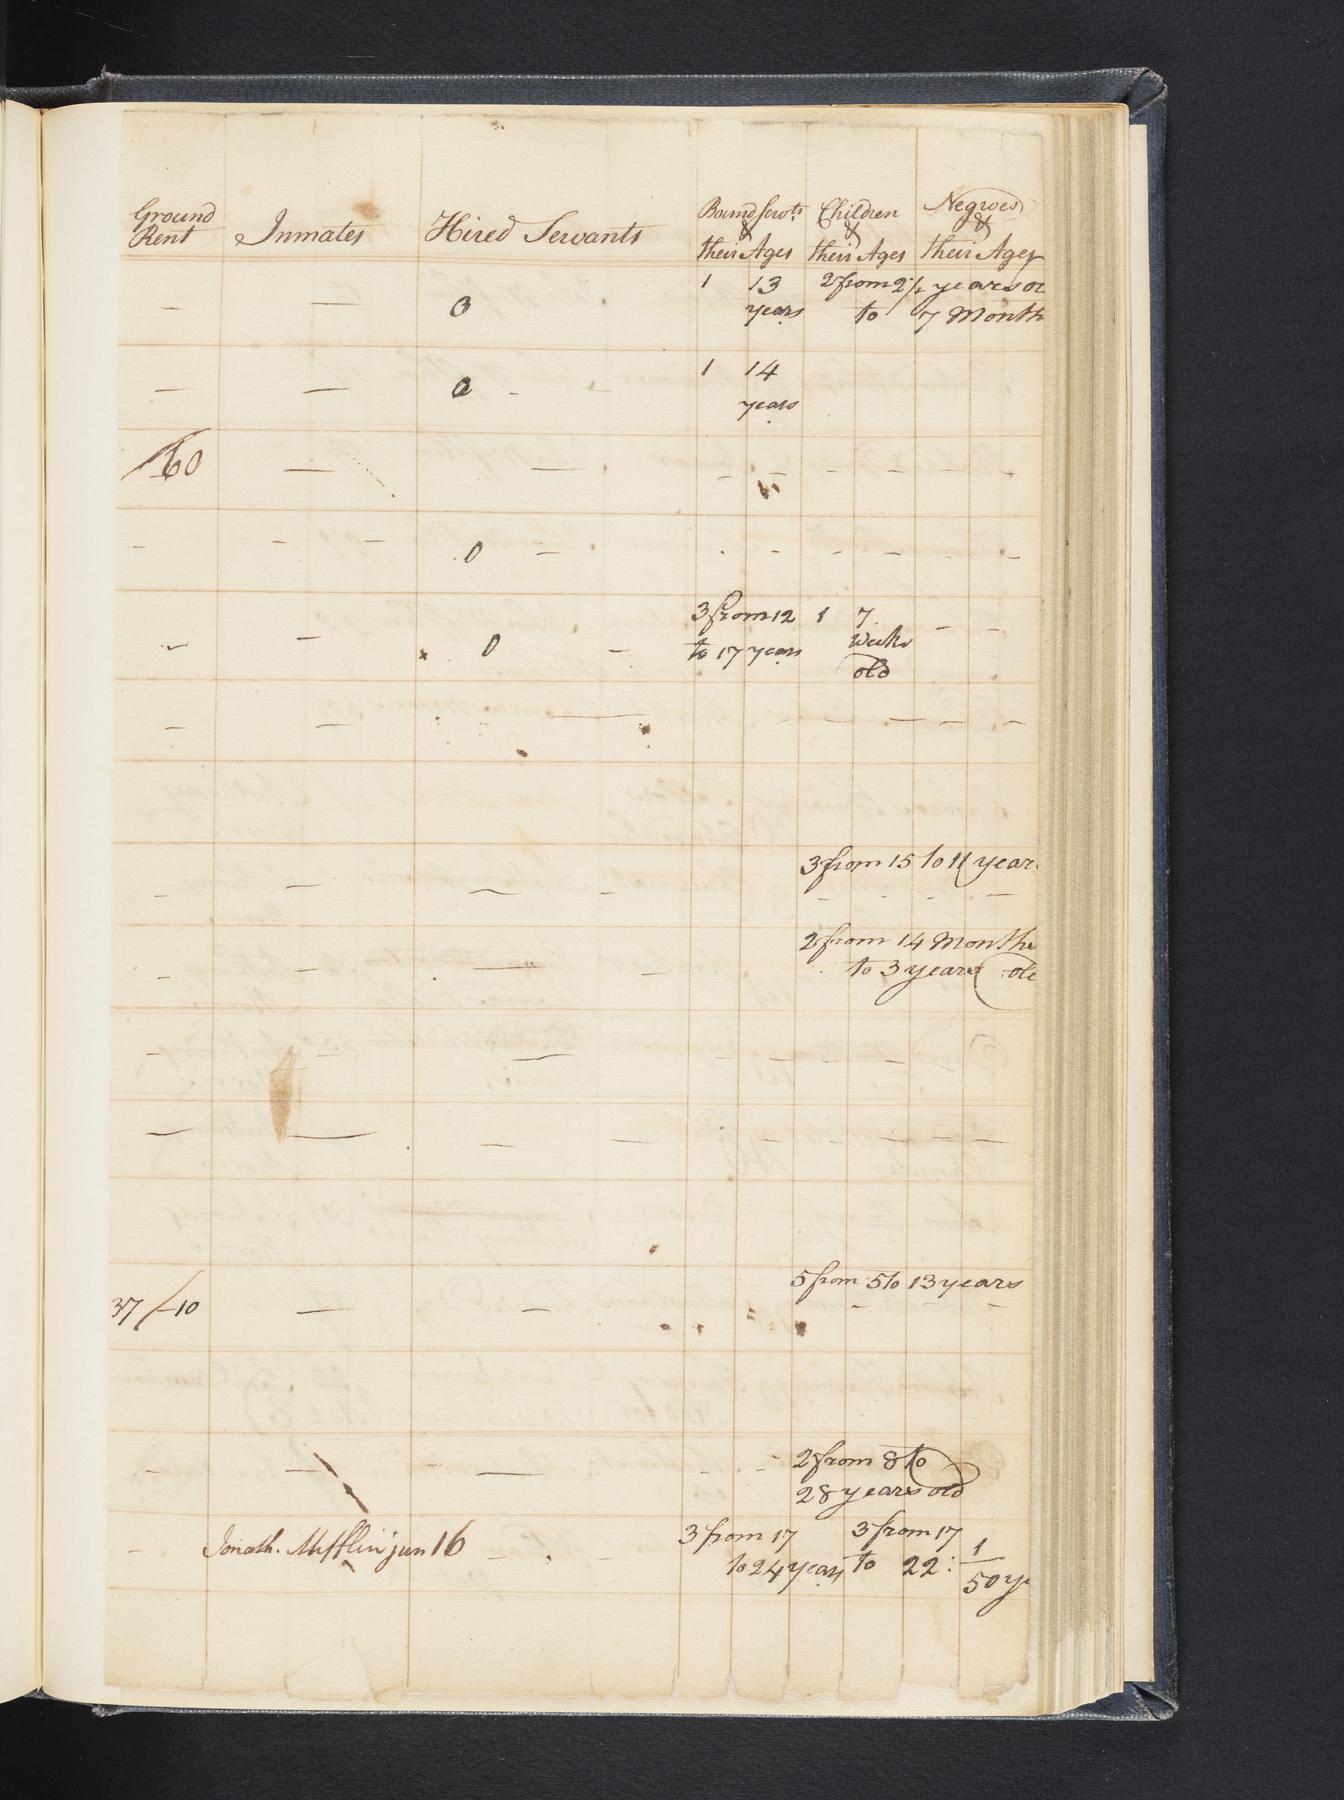 Ground Rent Inmates Hired Servants Bound Servts & their Ages Children & their Ages Negroes & their Ages
— — 0 1 13 years 2 from 2 1/2 years ol
to 7 Month
— — 0 - - 1 14 years
/60 — — - - - - - -
- - - 0 - - - - - - -
- — 0 - 3 from 12 to 17 years 1 7 Weeks old - -
- — — - - - -
3 from 15 to 11 year
- — — - - - - -
2 from 14 Months
- — - to 3 years old
- — - - - - - -
— — — — - - - - - -
5 from 5 to 13 years
37/10 — — - - -
2 from 8 to
- — — - - 28 years old
- Jonath. Mifflin jun 16 - - 3 from 17 to 24 years 3 from 17 to 22: 1 50 ye